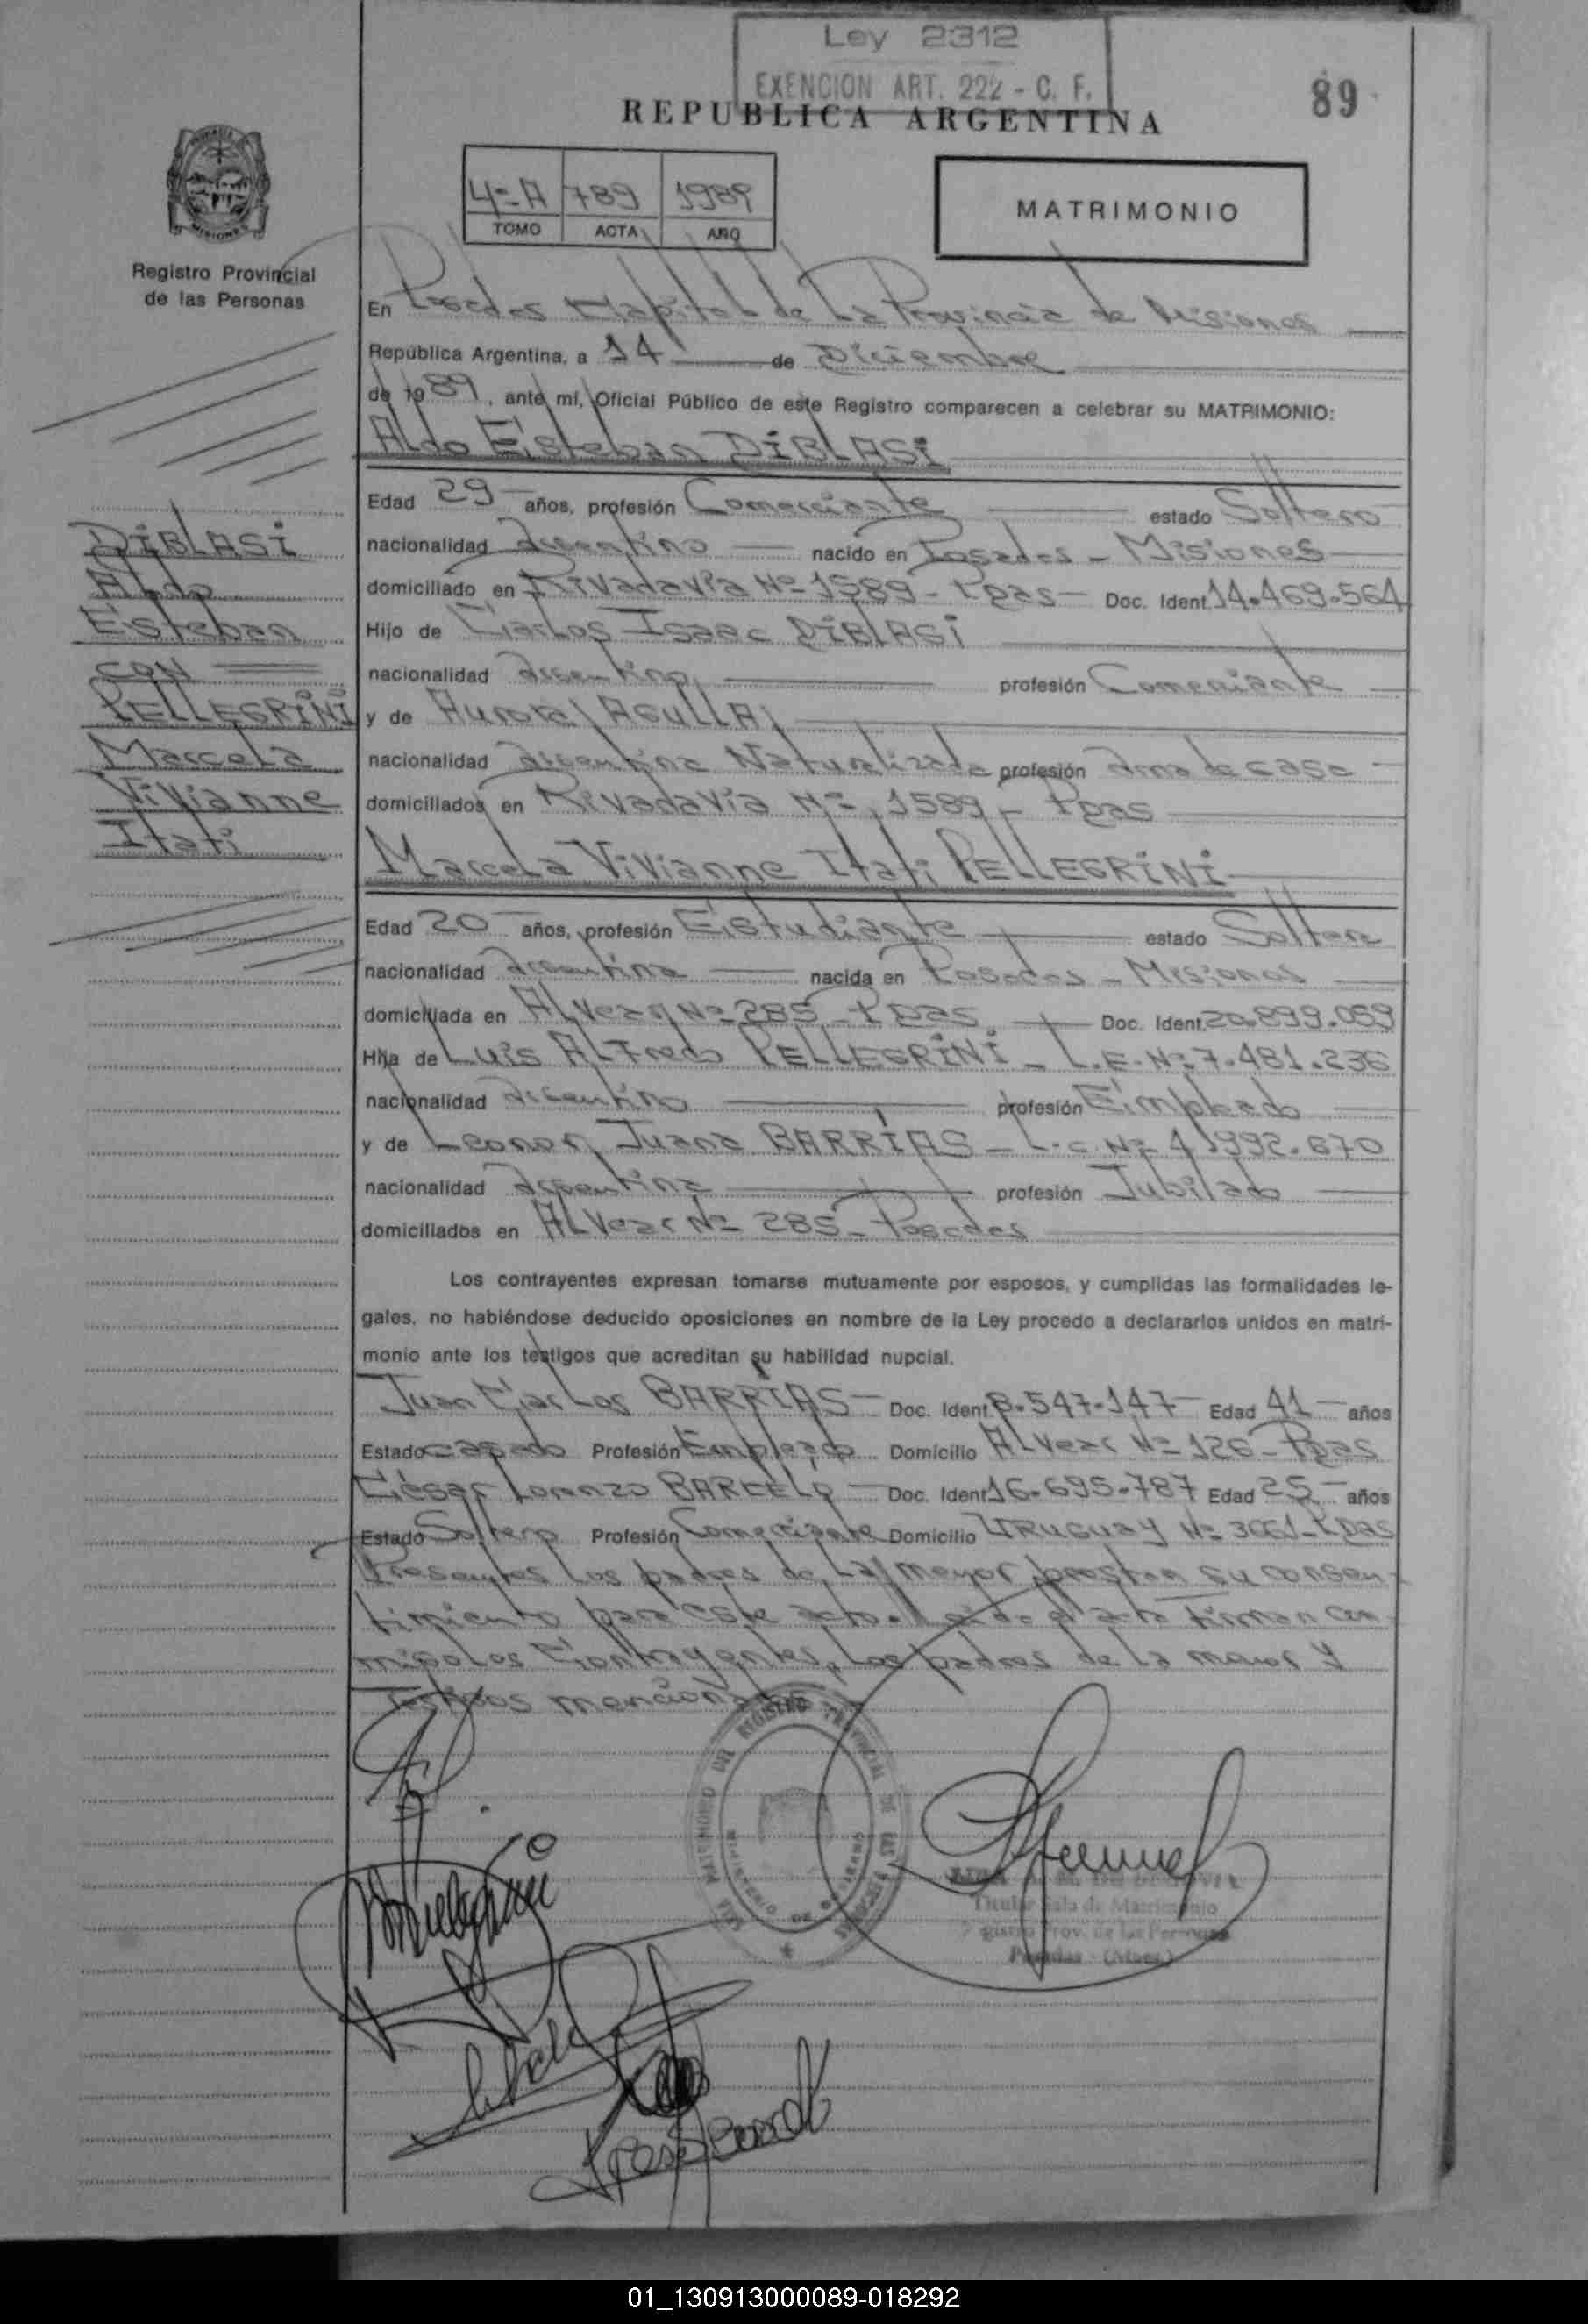 Ley 2312
EXENCION ART. 222 - C. F.
REPUBLICA ARGENTINA
89
MISIONES
Registro Provincial
de las Personas
4º A 789 1989
TOMO ACTA AÑO
MATRIMONIO
En Posadas Capital de La Provincia de Misiones
República Argentina, a 14 de Diciembre
de 1989, ante mí, Oficial Público de este Registro comparecen a celebrar su MATRIMONIO:
Aldo Esteban DIBLASI
Edad 29 años, profesión Comerciante estado Soltero
nacionalidad argentino nacido en Posadas - Misiones
domiciliado en Rivadavia Nº 1589 - Pdas Doc. Ident. 14.469.564
Hijo de Carlos Isaac DIBLASI
nacionalidad argentino profesión Comerciante
y de Aurora AGULLA
nacionalidad argentina Naturalizada profesión ama de casa
domiciliados en Rivadavia Nº 1589 - Pdas
Marcela Vivianne Itati PELLEGRINI
Edad 20 años, profesión Estudiante estado Soltera
nacionalidad argentina nacida en Posadas - Misiones
domiciliada en Alvear Nº 285 - Pdas Doc. Ident. 20.899.059
Hija de Luis Alfredo PELLEGRINI - L.E. Nº 7.481.236
nacionalidad argentino profesión Empleado
y de Leonor Juana BARRIAS - L.C. Nº 4.992.670
nacionalidad argentina profesión Jubilado
domiciliados en Alvear Nº 285 - Posadas
DIBLASI
Aldo
Esteban
CON
PELLEGRINI
Marcela
Vivianne
Itati
Los contrayentes expresan tomarse mutuamente por esposos, y cumplidas las formalidades le-
gales, no habiéndose deducido oposiciones en nombre de la Ley procedo a declararlos unidos en matri-
monio ante los testigos que acreditan su habilidad nupcial.
Juan Carlos BARRIAS Doc. Ident. 8.547.147 Edad 41 años
Estado casado Profesión Empleado Domicilio Alvear Nº 126 - Pdas
César Lorenzo BARCELO Doc. Ident. 16.695.787 Edad 25 años
Estado Soltero Profesión Comerciante Domicilio URUGUAY Nº 3661 - Pdas
Presentes Los padres de La menor prestan su consen-
timiento para este acto. Leido el acta firman con
migo los Contrayentes, Los padres de La menor y
Testigos mencionados
Titular Sala de Matrimonio
Registro Prov. de las Personas
Posadas (Mnes.)
01_130913000089-018292